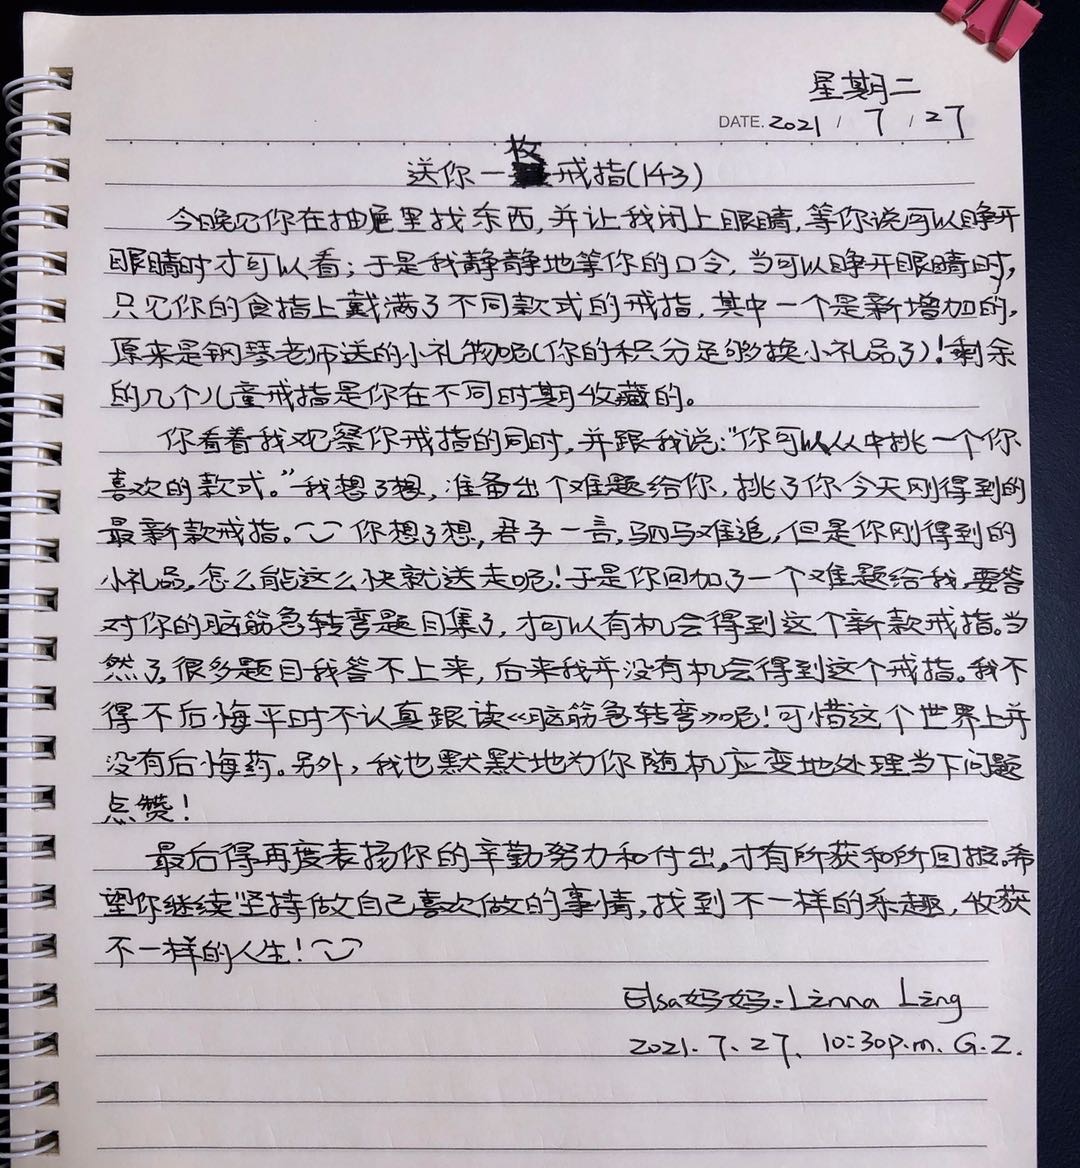 星期二
DATE. 2021 / 7 / 27
送你一枚戒指(143)
今晚见你在抽屉里找东西,并让我闭上眼睛,等你说可以睁开
眼睛时才可以看;于是我静静地等你的口令,当可以睁开眼睛时,
只见你的食指上戴满了不同款式的戒指,其中一个是新增加的,
原来是钢琴老师送的小礼物呢(你的积分足够换小礼品了)!剩余
的几个儿童戒指是你在不同时期收藏的。
你看着我观察你戒指的同时,并跟我说:“你可以从中挑一个你
喜欢的款式。”我想了想,准备出个难题给你,挑了你今天刚得到的
最新款戒指。你想了想,君子一言,驷马难追,但是你刚得到的
小礼品,怎么能这么快就送走呢!于是你回加了一个难题给我,要答
对你的脑筋急转弯题目集了,才可以有机会得到这个新款戒指。当
然了,很多题目我答不上来,后来我并没有机会得到这个戒指。我不
得不后悔平时不认真跟读《脑筋急转弯》呢!可惜这个世界上并
没有后悔药。另外,我也默默地为你随机应变地处理当下问题
点赞!
最后得再度表扬你的辛勤努力和付出,才有所获和所回报。希
望你继续坚持做自己喜欢做的事情,找到不一样的乐趣,收获
不一样的人生!
Elsa妈妈:Linna Ling
2021.7.27. 10:30p.m. G.Z.